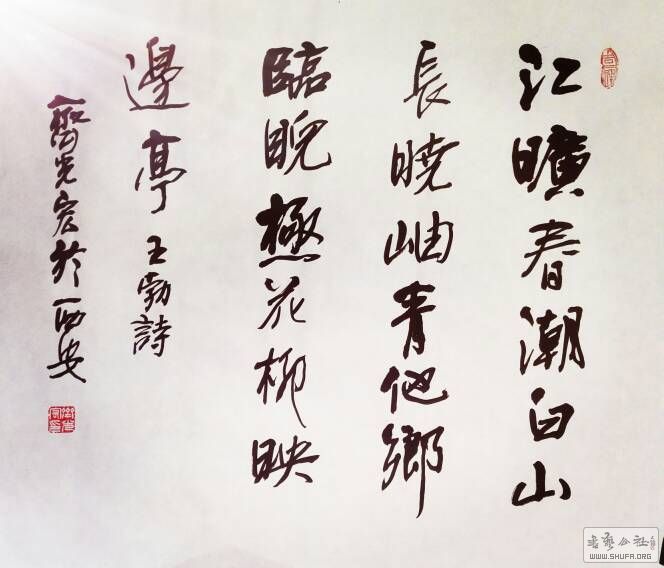 江曠春潮白山
長曉岫青他鄉
臨睨極花柳映
邊亭 王勃詩
齊光宏於西安
書藝公社
WWW.SHUFA.ORG